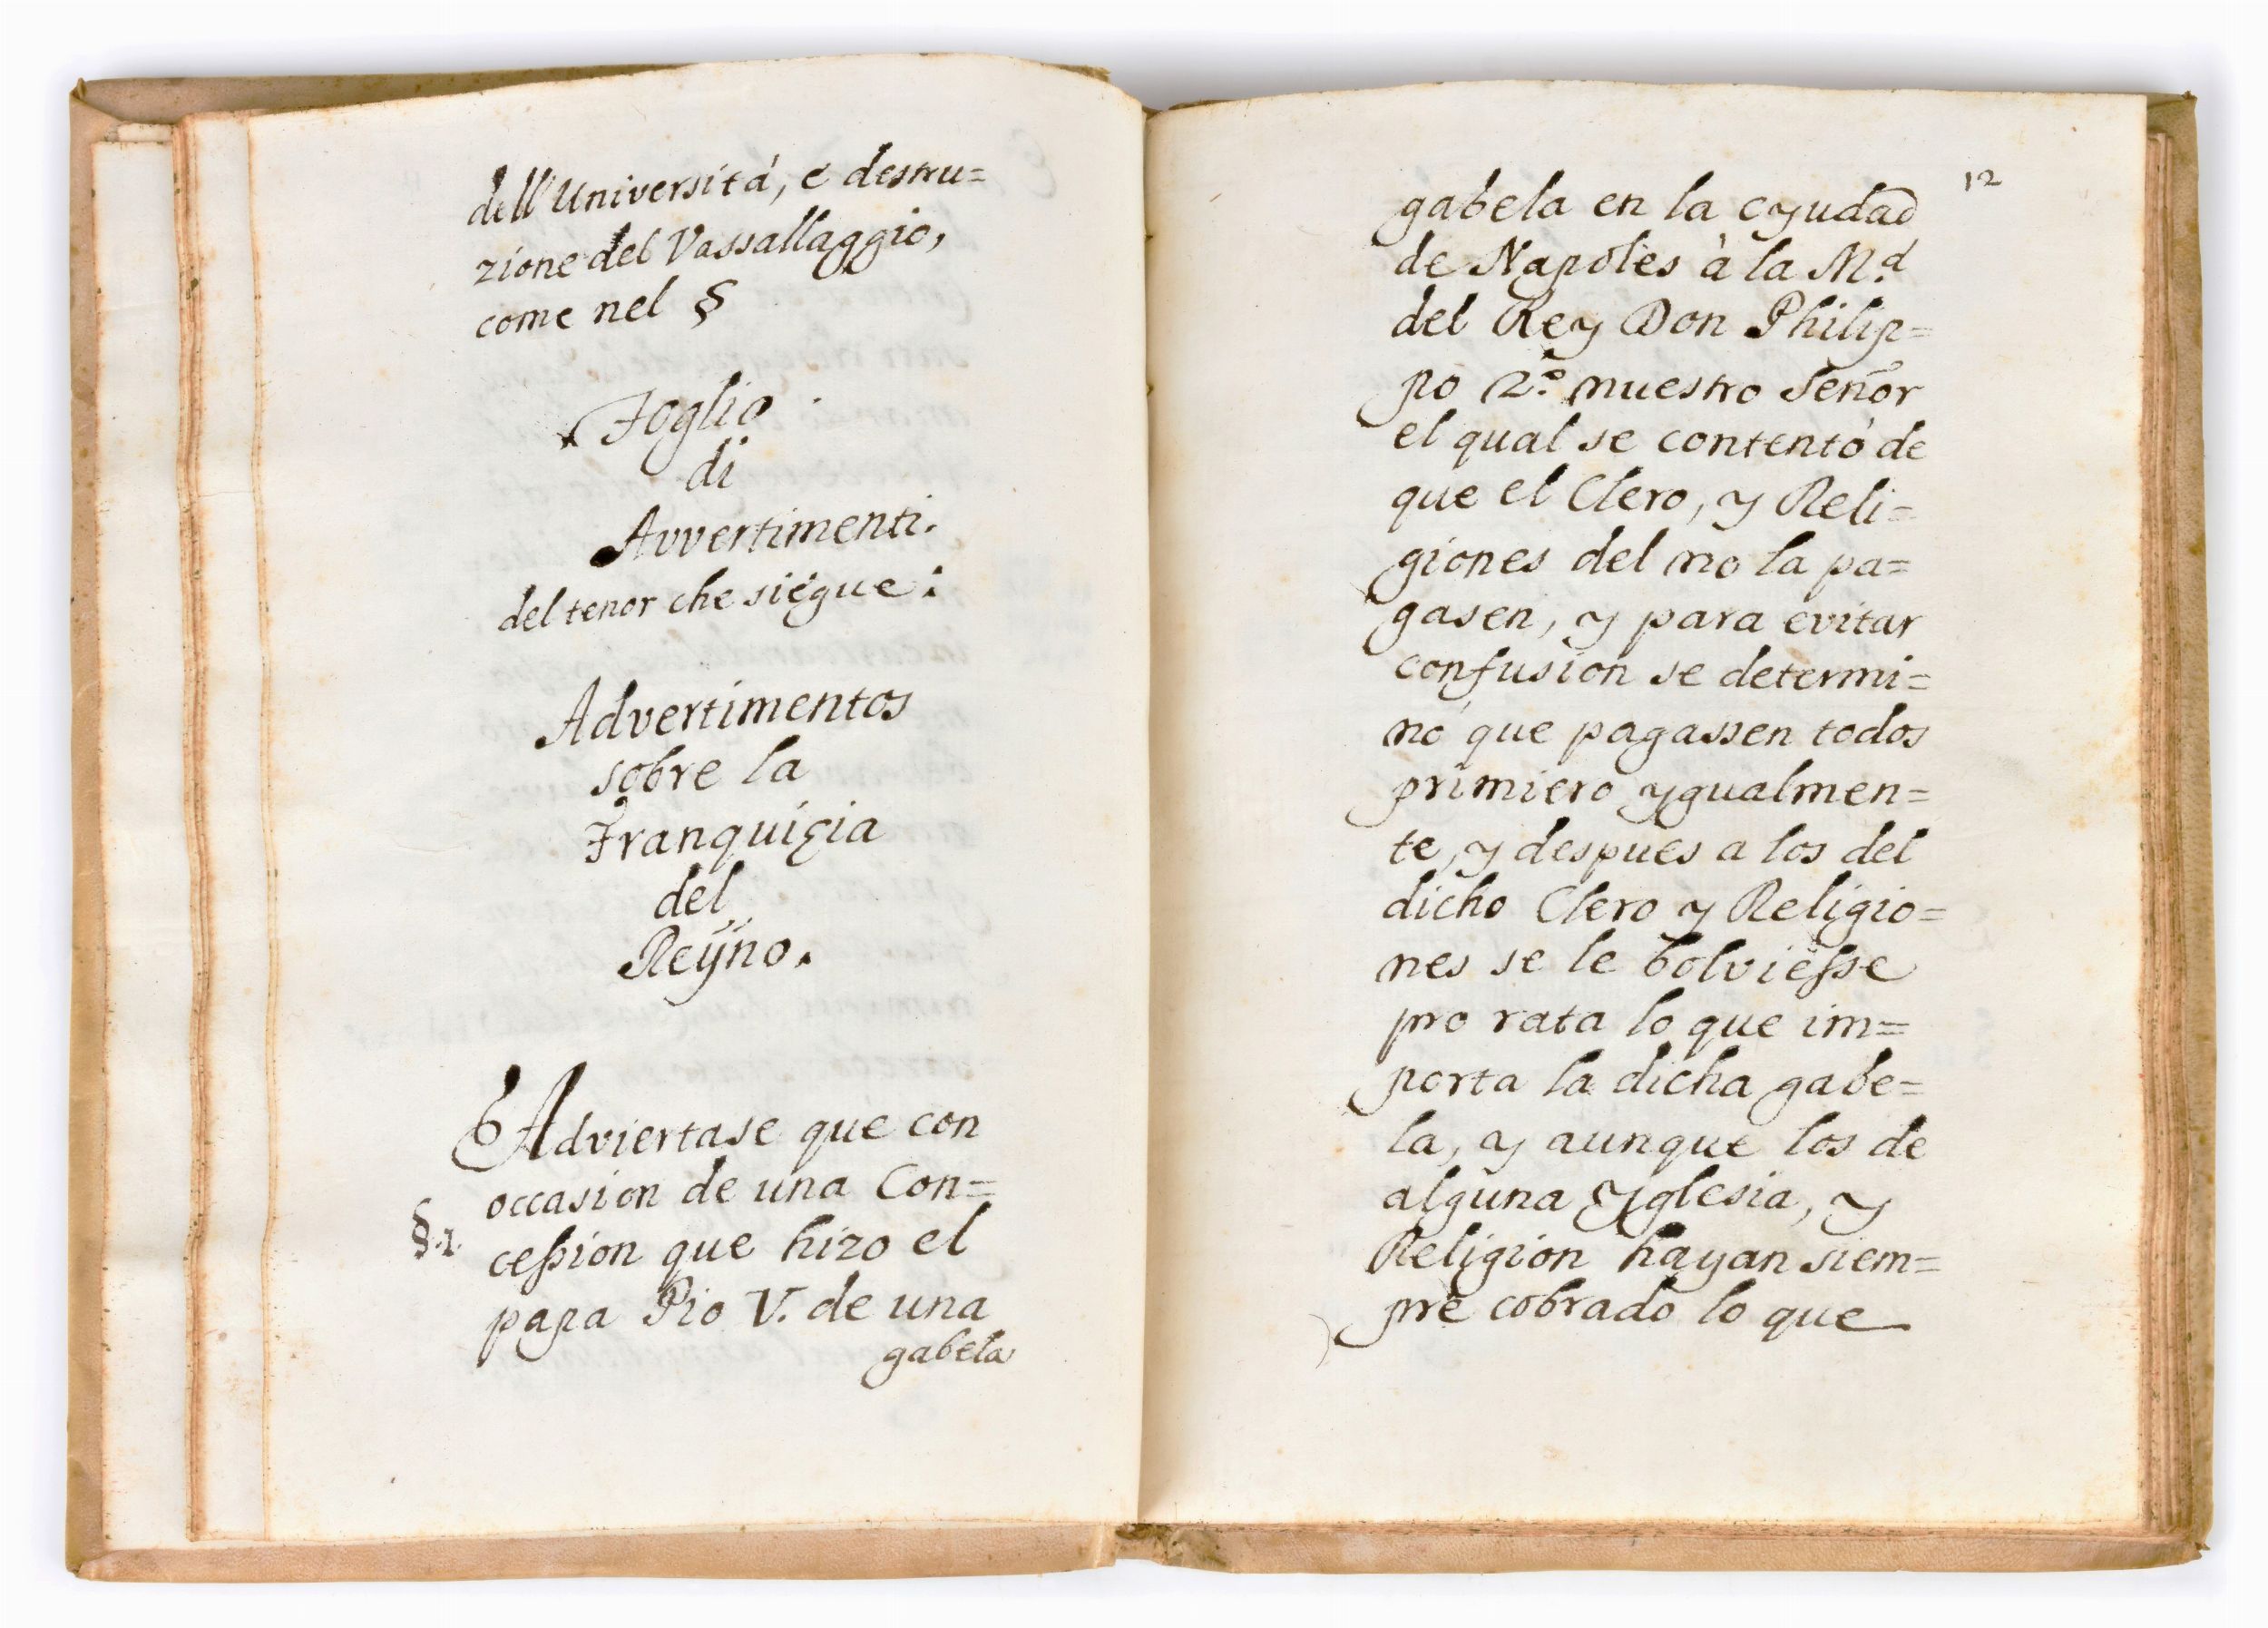 dell'Università, e destru=
zione del Vassallaggio,
come nel §
Foglio
di
Avvertimenti.
del tenor che siegue:
Advertimentos
sobre la
Franquiçia
del
Reÿno.
Adviertase que con
occasion de una Con=
§.1. cession que hizo el
papa Pio V. de una
gabela
12
gabela en la cyudad
de Napoles à la M.d
del Rey Don Philip=
po 2.º nuestro Señor
el qual se contentò de
que el Clero, y Reli=
giones del no la pa=
gasen, y para evitar
confusion se determi=
nò que pagassen todos
primiero ygualmen=
te, y despues a los del
dicho Clero y Religio=
nes se le bolviesse
pro rata lo que im=
porta la dicha gabe=
la, y aunque los de
alguna Yglesia, y
Religion hayan siem=
pre cobrado lo que